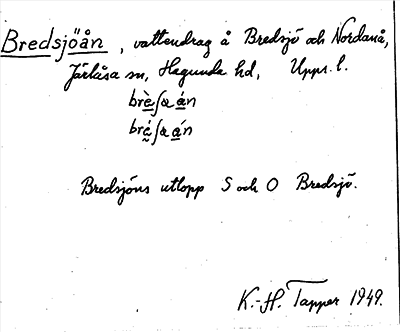 Bredsjöån, vattendrag å Bredsjö och Nordanå,
Järlåsa sn, Hagunda hd, Upps. l.
brè̱ʃɑá̱n
bré̱ʃɑá̱n
Bredsjöns utlopp S och O Bredsjö.
K.-H. Tapper 1949.